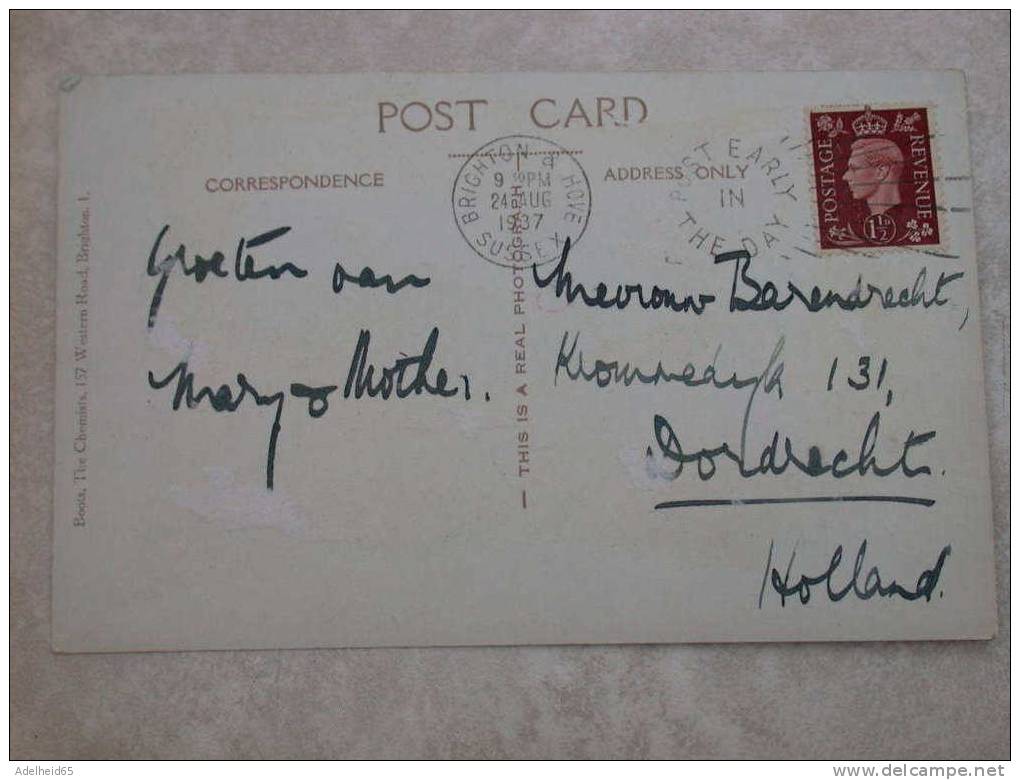 POST CARD
CORRESPONDENCE
ADDRESS ONLY
BRIGHTON & HOVE
9 PM
24 AUG
1937
SUSSEX
POST EARLY
IN
THE DAY
POSTAGE
REVENUE
1½D
Groeten van
Mary & Mother.
Mevrouw Barendrecht,
Krommedijk 131,
Dordrecht.
Holland.
— THIS IS A REAL PHOTOGRAPH
Boots, The Chemists, 157 Western Road, Brighton, 1.
Adelheid65
www.delcampe.net